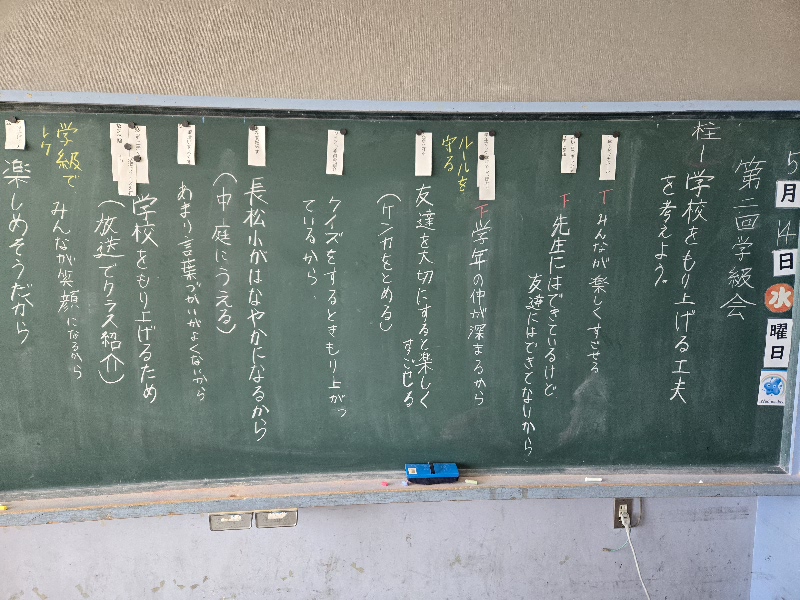 5月14日水曜日
第二回学級会
柱一学校をもり上げる工夫
を考えよう。
みんなが楽しくすごせる
先生にはできているけど
友達にはできてないから
ルールを
守る
学年の仲が深まるから
友達を大切にすると楽しく
すごせる
(ケンカをとめる)
クイズをするときもり上がっ
ているから、
長松小がはなやかになるから
(中庭にうえる)
あまり言葉づかいがよくないから
学校をもり上げるため
(放送でクラス紹介)
みんなが笑顔になるから
学級で
楽しめそうだから